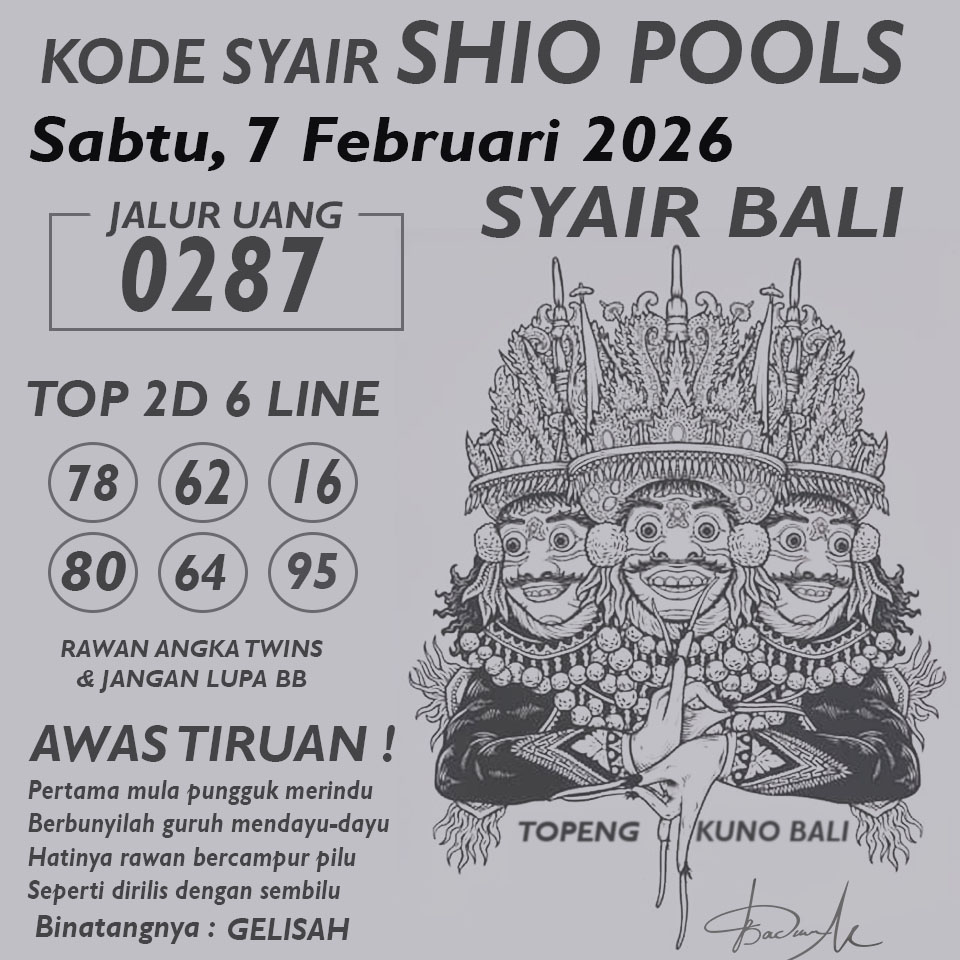 KODE SYAIR SHIO POOLS
Sabtu, 7 Februari 2026
SYAIR BALI
JALUR UANG
0287
TOP 2D 6 LINE
78 62 16
80 64 95
RAWAN ANGKA TWINS
& JANGAN LUPA BB
AWAS TIRUAN !
Pertama mula pungguk merindu
Berbunyilah guruh mendayu-dayu
Hatinya rawan bercampur pilu
Seperti dirilis dengan sembilu
Binatangnya : GELISAH
TOPENG KUNO BALI